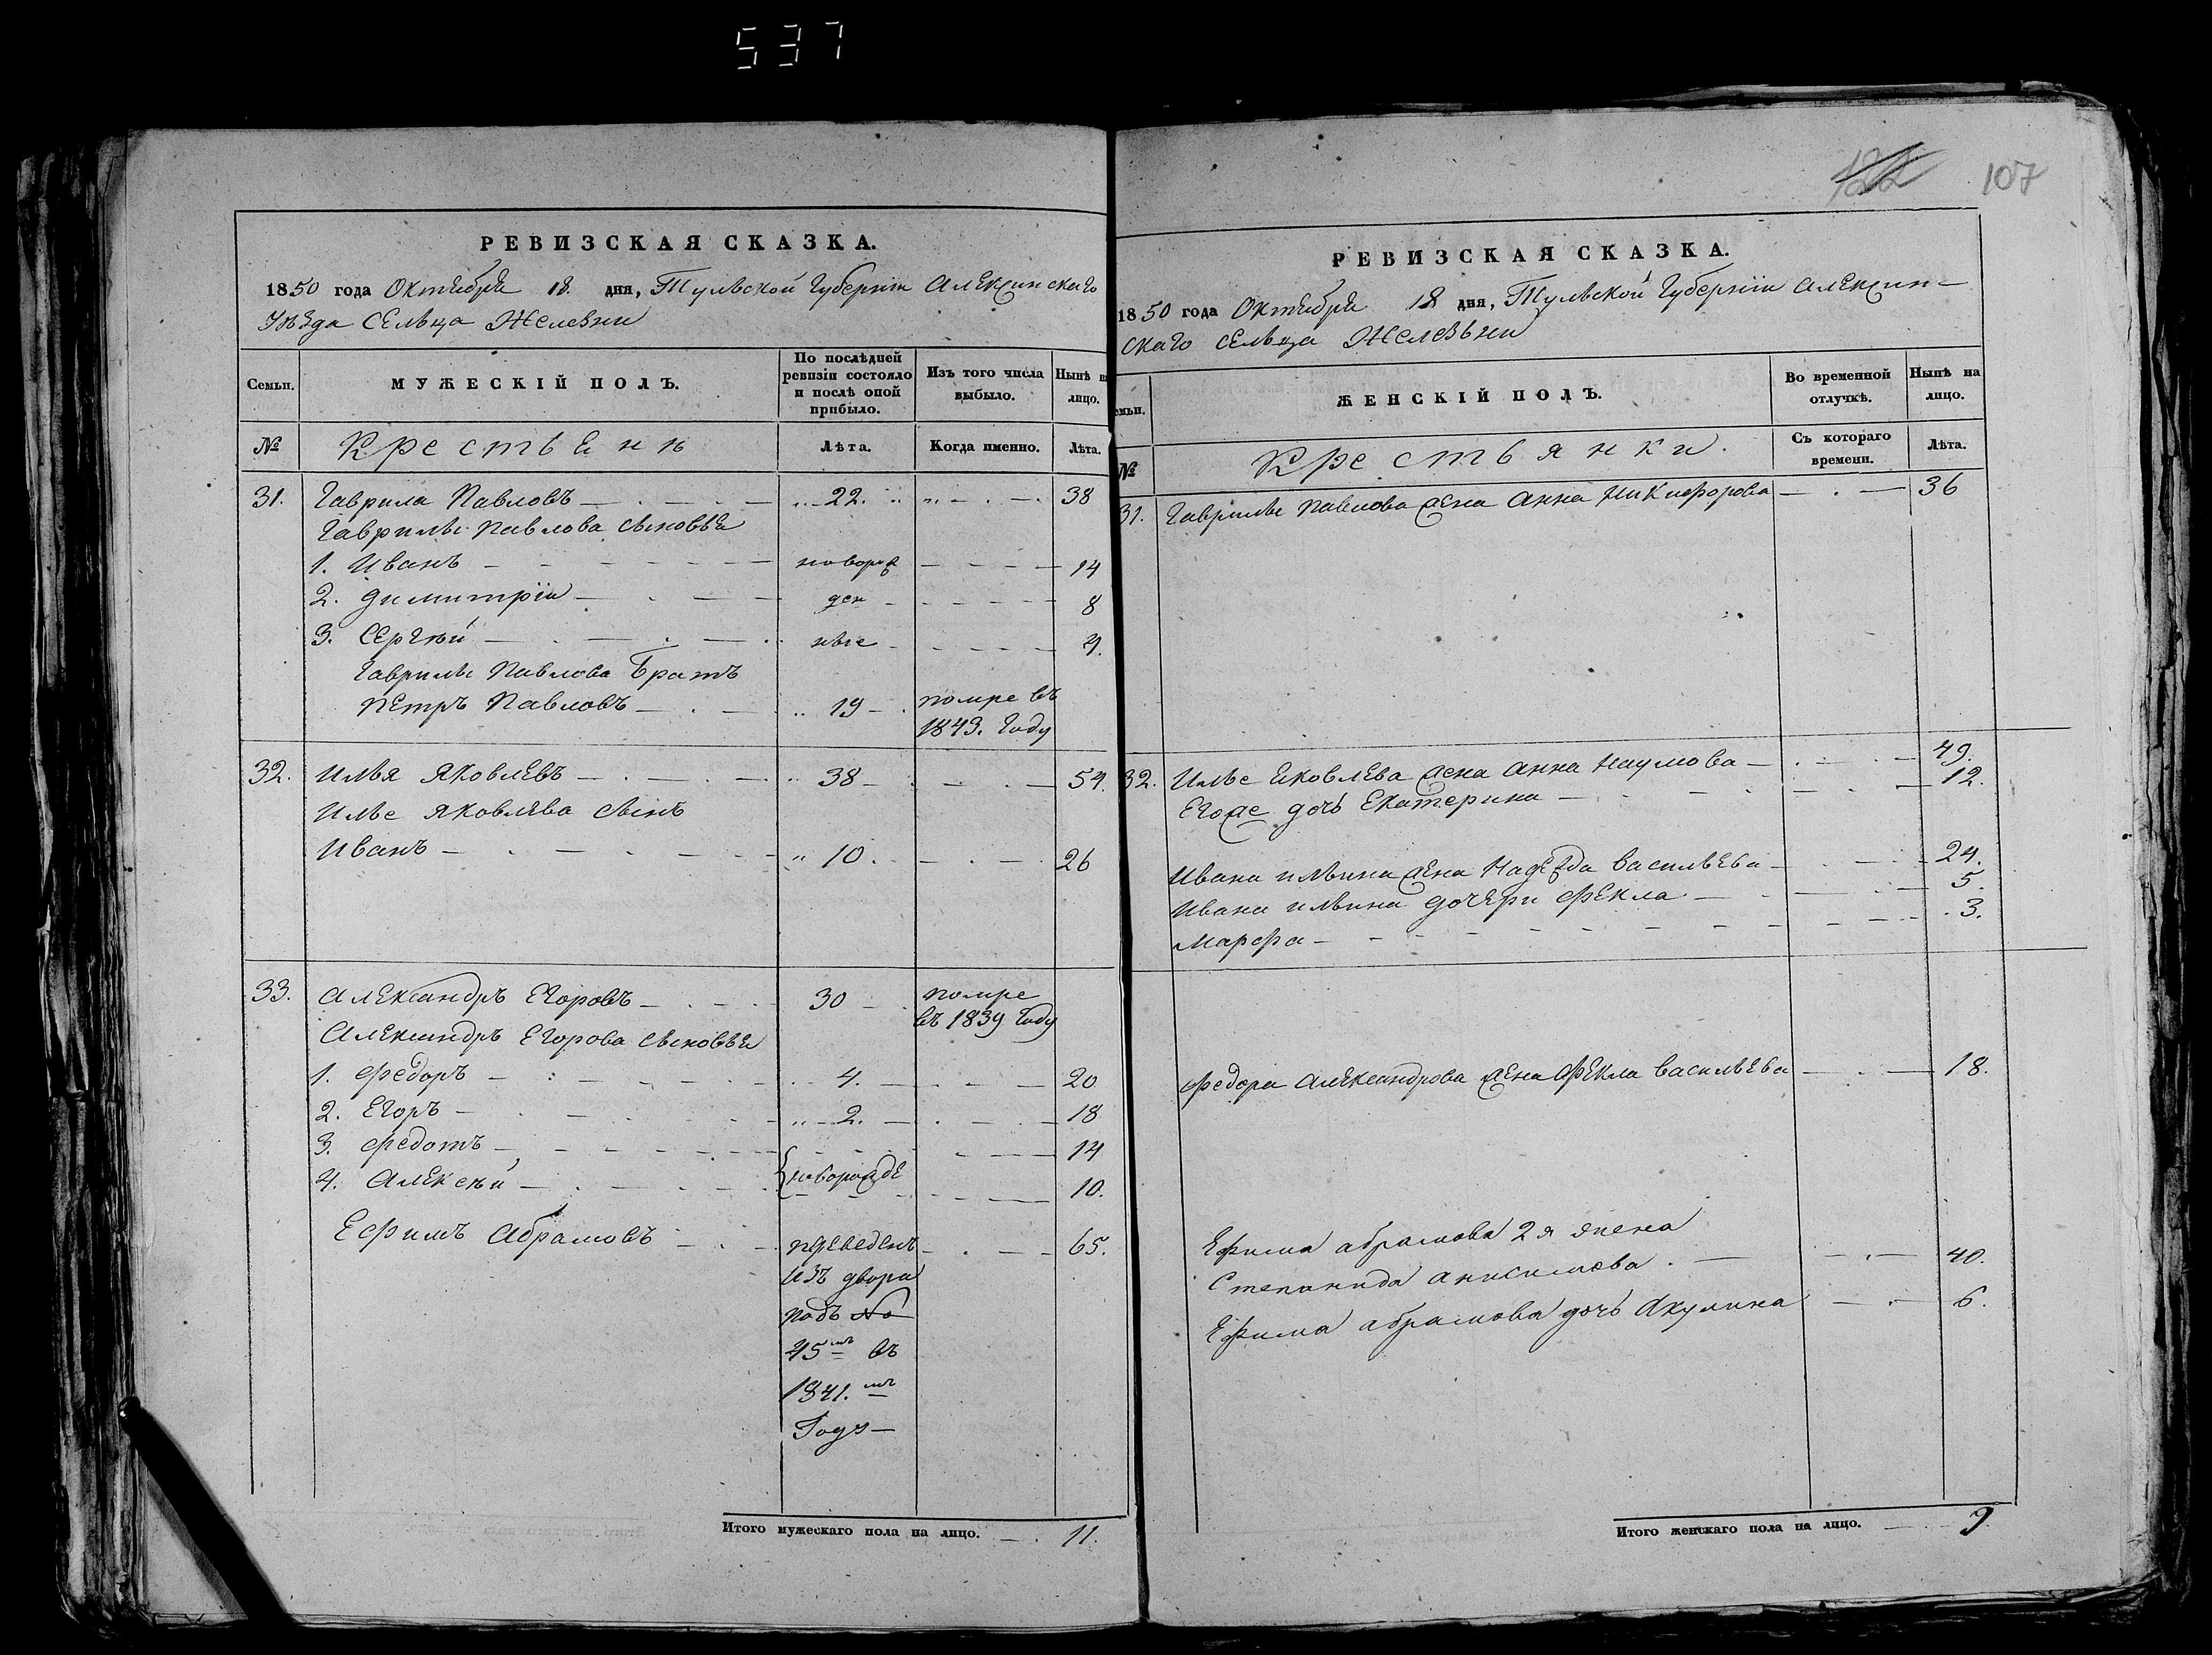 537
122 107
РЕВИЗСКАЯ СКАЗКА.
1850 года Октября 18. дня, Тульской Губерніи Алексинскаго
Уѣзда Сельца Желевни
Семьи. МУЖЕСКІЙ ПОЛЪ. По послѣдней ревизіи состояло и послѣ оной прибыло. Изъ того числа выбыло. Нынѣ на лицо.
№ Крестьяне Лѣта. Когда именно. Лѣта.
31. Гаврила Павловъ 22. 38
Гаврилы Павлова сыновья
1. Иванъ новорож 14
2. Димитрій ден 8
3. Сергѣй ные 4.
Гаврилы Павлова Братъ
Петръ Павловъ 19 помре въ
1843. Году
32. Илья Яковлевъ 38 54.
Илье Яковлева сынъ
Иванъ 10. 26
33. Александръ Егоровъ 30 помре
въ 1839 Году
Александръ Егорова сыновья
1. Федоръ 4. 20
2. Егоръ 2. 18
3. Федотъ 14
4. Алексѣй новорожде 10.
Ефимъ Абрамовъ переведенъ 65.
изъ двора
подъ №
45мъ въ
1841.мъ
Году
Итого мужескаго пола на лицо. 11.
РЕВИЗСКАЯ СКАЗКА.
1850 года Октября 18 дня, Тульской Губерніи Алексин-
скаго сельца Желевьни
емьи. ЖЕНСКІЙ ПОЛЪ. Во временной отлучкѣ. Нынѣ на лицо.
№ Крестьянки. Съ котораго времени. Лѣта.
31. Гаврилы Павлова жена Анна Никифорова 36
32. Илье Яковлева жена Анна Наумова 49.
Егоже дочь Екатерина 12.
Ивана ильина жена Надежда Васильева 24.
Ивана ильина дочери Фекла 5.
Марфа 3.
Федора Александрова жена Фекла Васильева 18.
Ефима абрамова 2я жена
Степанида Анисимова 40.
Ефима абрамова дочь Акулина 6.
Итого женскаго пола на лицо. 9